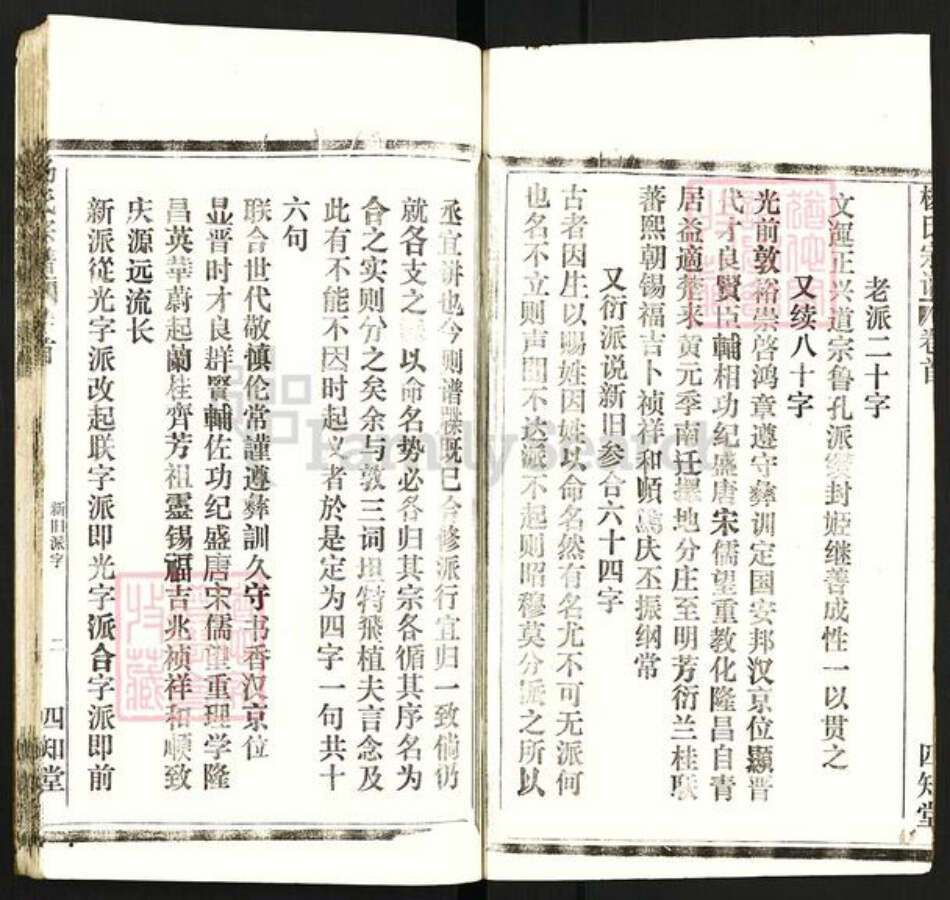 楊氏宗譜 卷首
四知堂
老派二十字
文運正兴道宗鲁孔派衍封姬继善成性一以贯之
又续八十字
光前敦裕崇啓鸿章遵守彝训定国安邦汉京位顯晋
代才良賢臣輔相功纪盛唐宋儒望重教化隆昌自青
居益適楚来黄元季南迁擇地分庄至明芳衍兰桂联
蕃熙朝锡福吉卜祯祥和順篤庆丕振纲常
又衍派说新旧参合六十四字
古者因生以賜姓因姓以命名然有名尤不可无派何
也名不立则声聞不达派不起则昭穆莫分派之所以
丞宜讲也今则谱牒既已合修派行宜归一致倘仍
就各支之 以命名势必各归其宗各循其序名为
合之实则分之矣余与敦三词坦特飛植夫言念及
此有不能不因时起义者於是定为四字一句共十
六句
联合世代敬慎伦常謹遵彝訓久守书香汉京位
显晋时才良群賢輔佐功纪盛唐宋儒望重理学隆
昌英華蔚起蘭桂齊芳祖靈锡福吉兆祯祥和順致
庆源远流长
新派從光字派改起联字派即光字派合字派即前
新旧派字
二
四知堂
FamilySearch